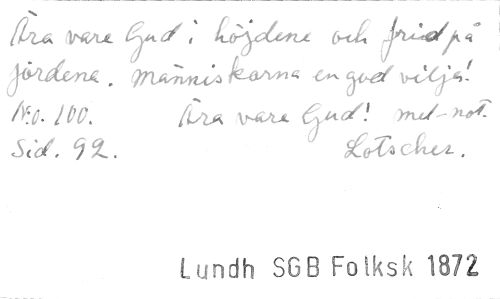 Ära vare Gud i höjdene och frid på
jordena. människorna en god vilja!
No. 100. Ära vare Gud! mel-not.
Sid. 92. Lotscher.
Lundh SGB Folksk 1872